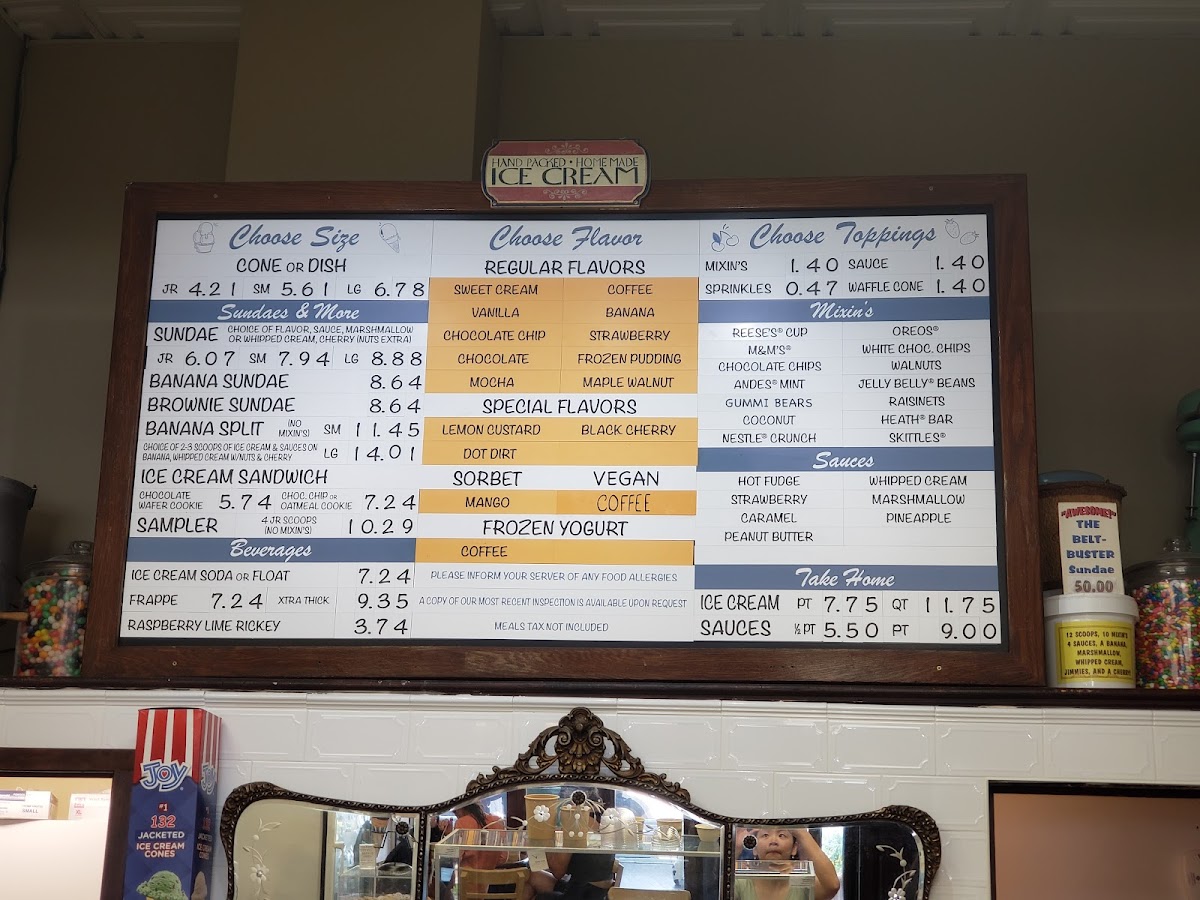 HAND PACKED • HOME MADE
ICE CREAM
Choose Size
CONE OR DISH
JR 4.21 SM 5.61 LG 6.78
Sundaes & More
SUNDAE CHOICE OF FLAVOR, SAUCE, MARSHMALLOW
OR WHIPPED CREAM, CHERRY (NUTS EXTRA)
JR 6.07 SM 7.94 LG 8.88
BANANA SUNDAE 8.64
BROWNIE SUNDAE 8.64
BANANA SPLIT (NO MIXIN'S) SM 11.45
CHOICE OF 2-3 SCOOPS OF ICE CREAM & SAUCES ON
BANANA, WHIPPED CREAM W/NUTS & CHERRY LG 14.01
ICE CREAM SANDWICH
CHOCOLATE WAFER COOKIE 5.74 CHOC. CHIP OR OATMEAL COOKIE 7.24
SAMPLER 4 JR SCOOPS (NO MIXIN'S) 10.29
Beverages
ICE CREAM SODA OR FLOAT 7.24
FRAPPE 7.24 XTRA THICK 9.35
RASPBERRY LIME RICKEY 3.74
Choose Flavor
REGULAR FLAVORS
SWEET CREAM COFFEE
VANILLA BANANA
CHOCOLATE CHIP STRAWBERRY
CHOCOLATE FROZEN PUDDING
MOCHA MAPLE WALNUT
SPECIAL FLAVORS
LEMON CUSTARD BLACK CHERRY
DOT DIRT
SORBET VEGAN
MANGO COFFEE
FROZEN YOGURT
COFFEE
PLEASE INFORM YOUR SERVER OF ANY FOOD ALLERGIES
A COPY OF OUR MOST RECENT INSPECTION IS AVAILABLE UPON REQUEST
MEALS TAX NOT INCLUDED
Choose Toppings
MIXIN'S 1.40 SAUCE 1.40
SPRINKLES 0.47 WAFFLE CONE 1.40
Mixin's
REESE'S® CUP OREOS®
M&M'S® WHITE CHOC. CHIPS
CHOCOLATE CHIPS WALNUTS
ANDES® MINT JELLY BELLY® BEANS
GUMMI BEARS RAISINETS
COCONUT HEATH® BAR
NESTLE® CRUNCH SKITTLES®
Sauces
HOT FUDGE WHIPPED CREAM
STRAWBERRY MARSHMALLOW
CARAMEL PINEAPPLE
PEANUT BUTTER
Take Home
ICE CREAM PT 7.75 QT 11.75
SAUCES ½ PT 5.50 PT 9.00
"AWESOME!"
THE
BELT-
BUSTER
Sundae
50.00
12 SCOOPS, 10 MIXIN'S
4 SAUCES, A BANANA,
MARSHMALLOW,
WHIPPED CREAM,
JIMMIES, AND A CHERRY!
JOY
#1
132
JACKETED
ICE CREAM
CONES
SMALL